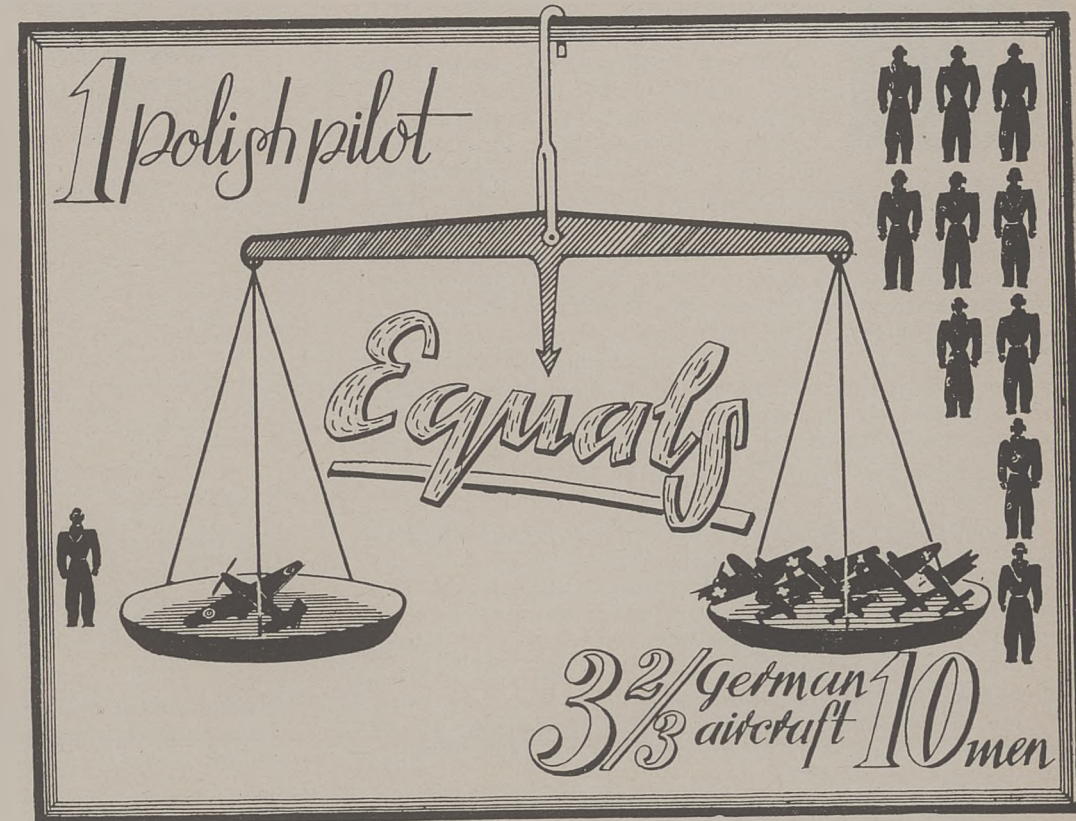 1 polish pilot
Equals
3 2/3 German aircraft 10 men